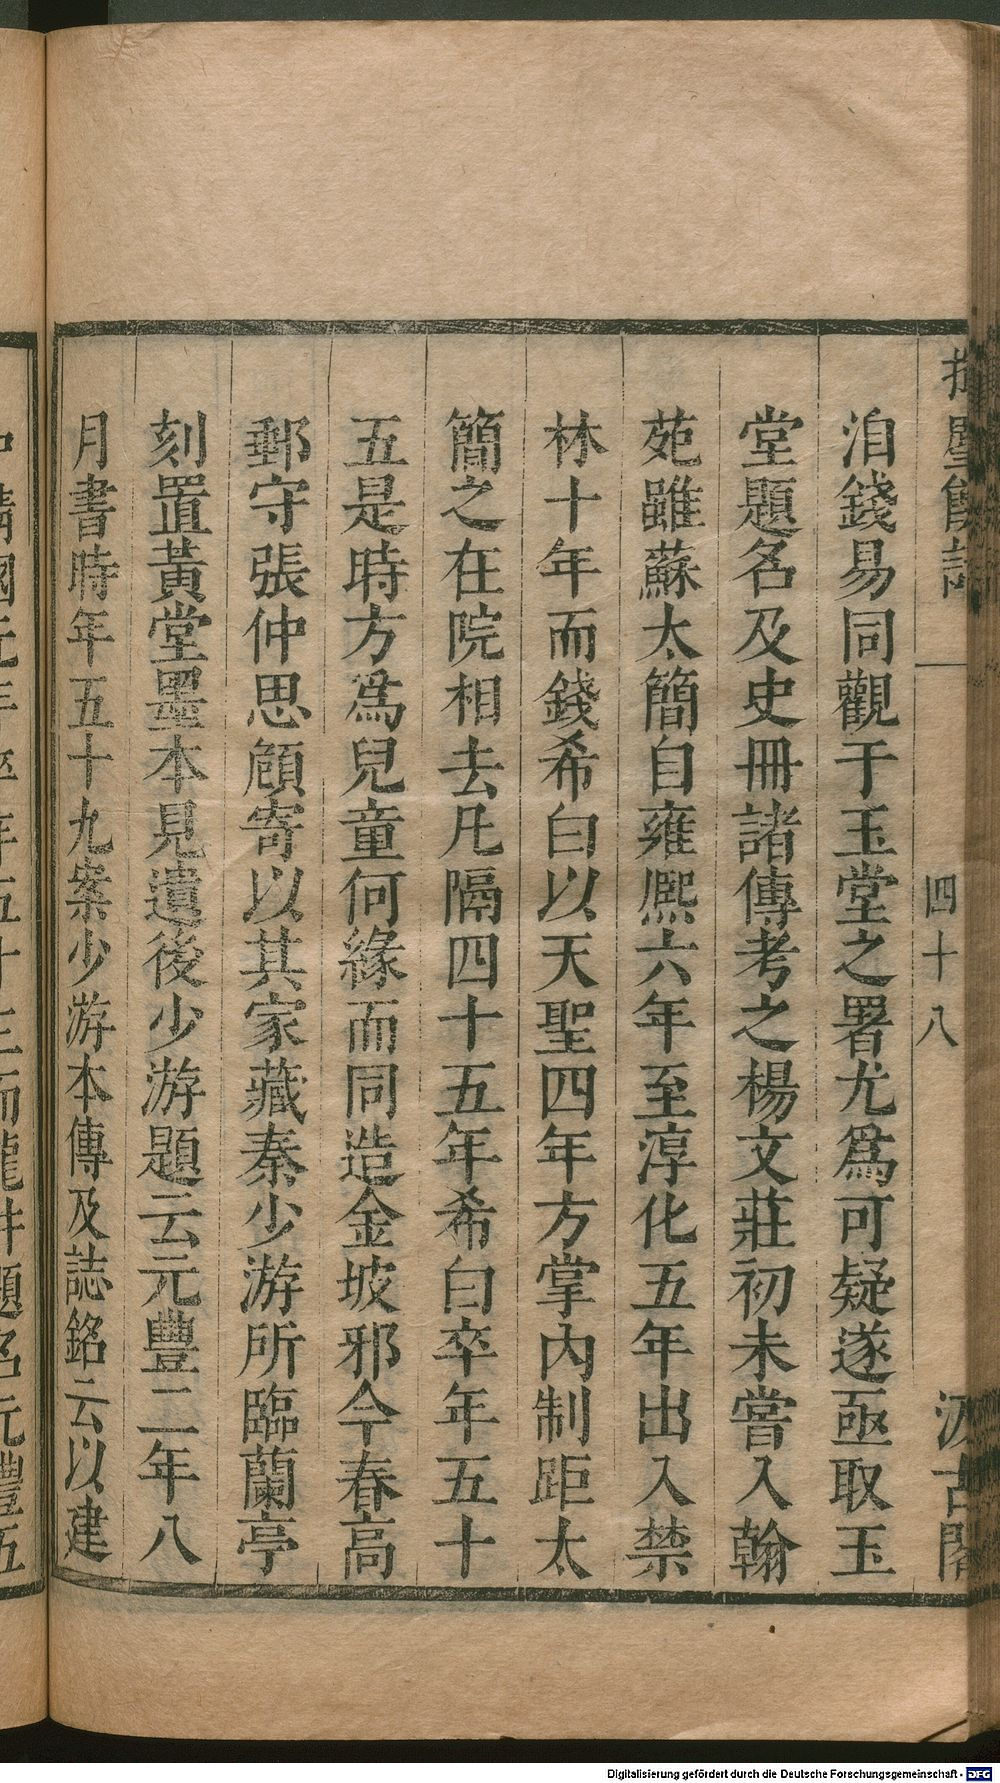 揮麈餘話
四十八
汲古閣
洎錢易同觀于玉堂之署尤爲可疑遂亟取玉
堂題名及史冊諸傳考之楊文莊初未嘗入翰
苑雖蘇太簡自雍熙六年至淳化五年出入禁
林十年而錢希白以天聖四年方掌內制距太
簡之在院相去凡隔四十五年希白卒年五十
五是時方爲兒童何緣而同造金坡邪今春高
郵守張仲思頎寄以其家藏秦少游所臨蘭亭
刻置黃堂墨本見遺後少游題云元豐二年八
月書時年五十九案少游本傳及誌銘云以建
Digitalisierung gefördert durch die Deutsche Forschungsgemeinschaft - DFG